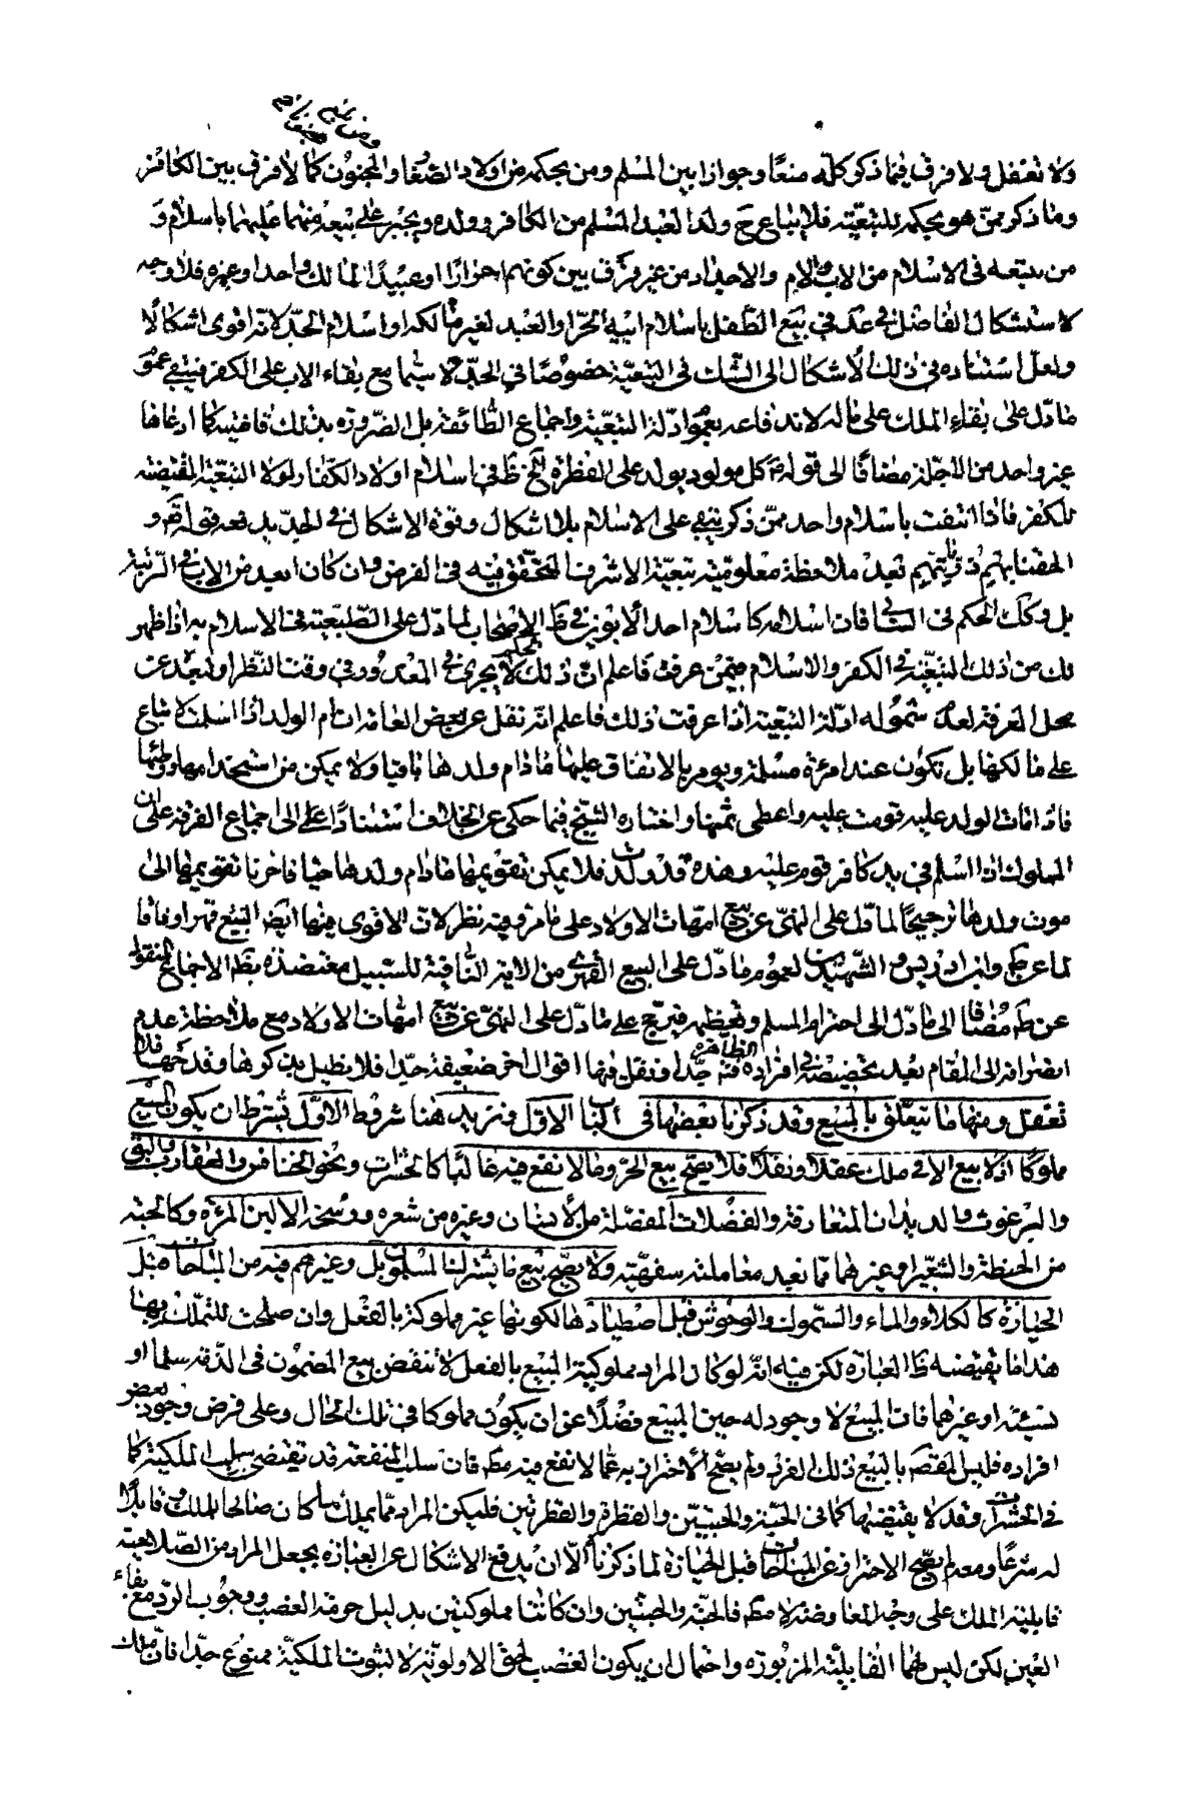 ولا تغفل ولا فرق فيما ذكر كله منعا وجوازا بين المسلم ومن بحكمه من اولاد الصغار والمجنون كما لا فرق بين الكافر
وما ذكر ممن هو بحكمه للتبعية فلا يباع ح ولد العبد المسلم من الكافر وولده ويجبر على بيعه منهما عليهما باسلام
من يتبعه في الاسلام من الاب والام والاجداد من غير فرق بين كونهم احرارا او عبيدا لمالك واحد او غيره فلا وجه
لاستشكال الفاضل في عد في بيع الطفل باسلام ابيه الحر او العبد لغير مالكه او اسلام الجد لانه اقوى اشكالا
ولعل استناده في ذلك الاشكال الى الشك في التبعية خصوصا في الجد لا سيما مع بقاء الاب على الكفر فيبقى عموم
ما دل على بقاء الملك على حاله لاندفاعه بعموم ادلة التبعية واجماع الطائفة بل الضرورة بذلك قاضية كما ادعاها
غير واحد من الاجلة مضافا الى قوله كل مولود يولد على الفطرة الخ في اسلام اولاد الكفار لولا التبعية المقتضية
للكفر فاذا انتفت باسلام واحد ممن ذكر بقي على الاسلام بلا اشكال وقوة الاشكال في الجد يدفعه قوله تعالى و
الحقنا بهم ذريتهم بعد ملاحظة معلومية تبعية الاشرف المتحقق فيه في الفرض وان كان ابعد من الاب في الرتبة
بل وكك الحكم في فان اسلامه كاسلام احد الابوين في ظ الاصحاب لما دل على التبعية في الاسلام به اذا ظهر
لك من ذلك التبعية في الكفر والاسلام فيمن عرفت فاعلم ان ذلك لا يجري في وقت النظر او لبعده عن
محل المعرفة لعدم شموله ادلة التبعية اذا عرفت ذلك فاعلم انه نقل عن بعض العامة ان ام الولد اذا اسلمت لا تباع
على مالكها بل تكون عند امرئة مسلمة ويومر بالانفاق عليها ما دام ولدها باقيا ولا يمكن من استخدامها ووطيها
فاذا مات الولد عليه قومت عليه واعطى ثمنها واختاره الشيخ فيما حكى عن الخلاف استنادا الى اجماع الفرقة على ان
المملوك اذا اسلم في يد كافر قوم عليه وهذه قد ولدت فلا يمكن تقويمها ما دام ولدها حيا فاخرنا تقويمها الى
موت ولدها ترجيحا لما دل على النهي عن بيع امهات الاولاد على ما مر وفيه نظر لان الاقوى فيها ايضا البيع قهرا وفاقا
لما عن وابن ادريس والشهيدين لعموم ما دل على البيع القهري من الاية النافية للسبيل معتضدة بظ الاجماع المنقول
عن مضافا الى ما دل الى احترام المسلم وتعظيمه فيرجح على ما دل على النهي عن بيع امهات الاولاد مع ملاحظة عدم
انصرافه الى المقام بعد تخصيصه في افراده الظاهرة فيه جدا ونقل فيها اقوال اخر ضعيفة جدا فلا نطيل بذكرها وقد فلا
تغفل ومنها ما يتعلق بالمبيع وقد ذكرنا بعضها في الباب الاول ونزيد هنا شروط الاول يشترط ان يكون المبيع
مملوكا اذ لا بيع الا في ملك عقلا ونقلا فلا يصح بيع الحر وما لا نفع فيه غالبا كالحشرات ونحو الخنافس والعقارب والبق
والبرغوث والديدان المتعارفة والفضلات المفضلة من الانسان وغيره من شعره ووسخه الا لبن المرئة وكالحبة
من الحنطة والشعير او غيرهما مما يعد معاملته سفهية ولا يصح بيع ما يشترك المسلمون بل وغيرهم فيه من المباحات قبل
الحيازة كالكلاء والماء والسموك والوحوش قبل اصطيادها لكونها غير مملوكة بالفعل وان صلحت للتملك
هذا ما يقتضيه ظ العبارة لكن فيه انه لو كان المراد مملوكية المبيع بالفعل لانتقض ببيع المضمون في الذمة سلما او
نسيئة او غيرهما فان المبيع لا وجود له حين البيع فضلا عن ان يكون مملوكا في تلك الحال وعلى فرض وجود بعض
افراده فليس القصد بالبيع ذلك الفرد ولم يصح الاحتراز به عما لا نفع فيه مط فان سلب المنفعة قد يقتضي سلب الملكية كما
في الحشرات وقد لا يقتضيها كما في الحبة والحبتين والقطرة والقطرتين فليكن المراد مما يملك ما كان صالحا للملك وقابلا
له شرعا ومعه لم يصح الاحتراز عن المباحات قبل الحيازة لما ذكرنا الا ان يدفع الاشكال عن العبارة بجعل المراد من الصلاحية
قابلية الملك على وجه المعاوضة لا مط فالحبة والحبتين وان كانتا مملوكتين بدليل حرمة الغصب ووجوب الرد مع بقاء
العين لكن ليس لهما القابلية المزبورة واحتمال ان يكون الغصب لحق الاولوية لا لثبوت الملكية ممنوع جدا فان ملك